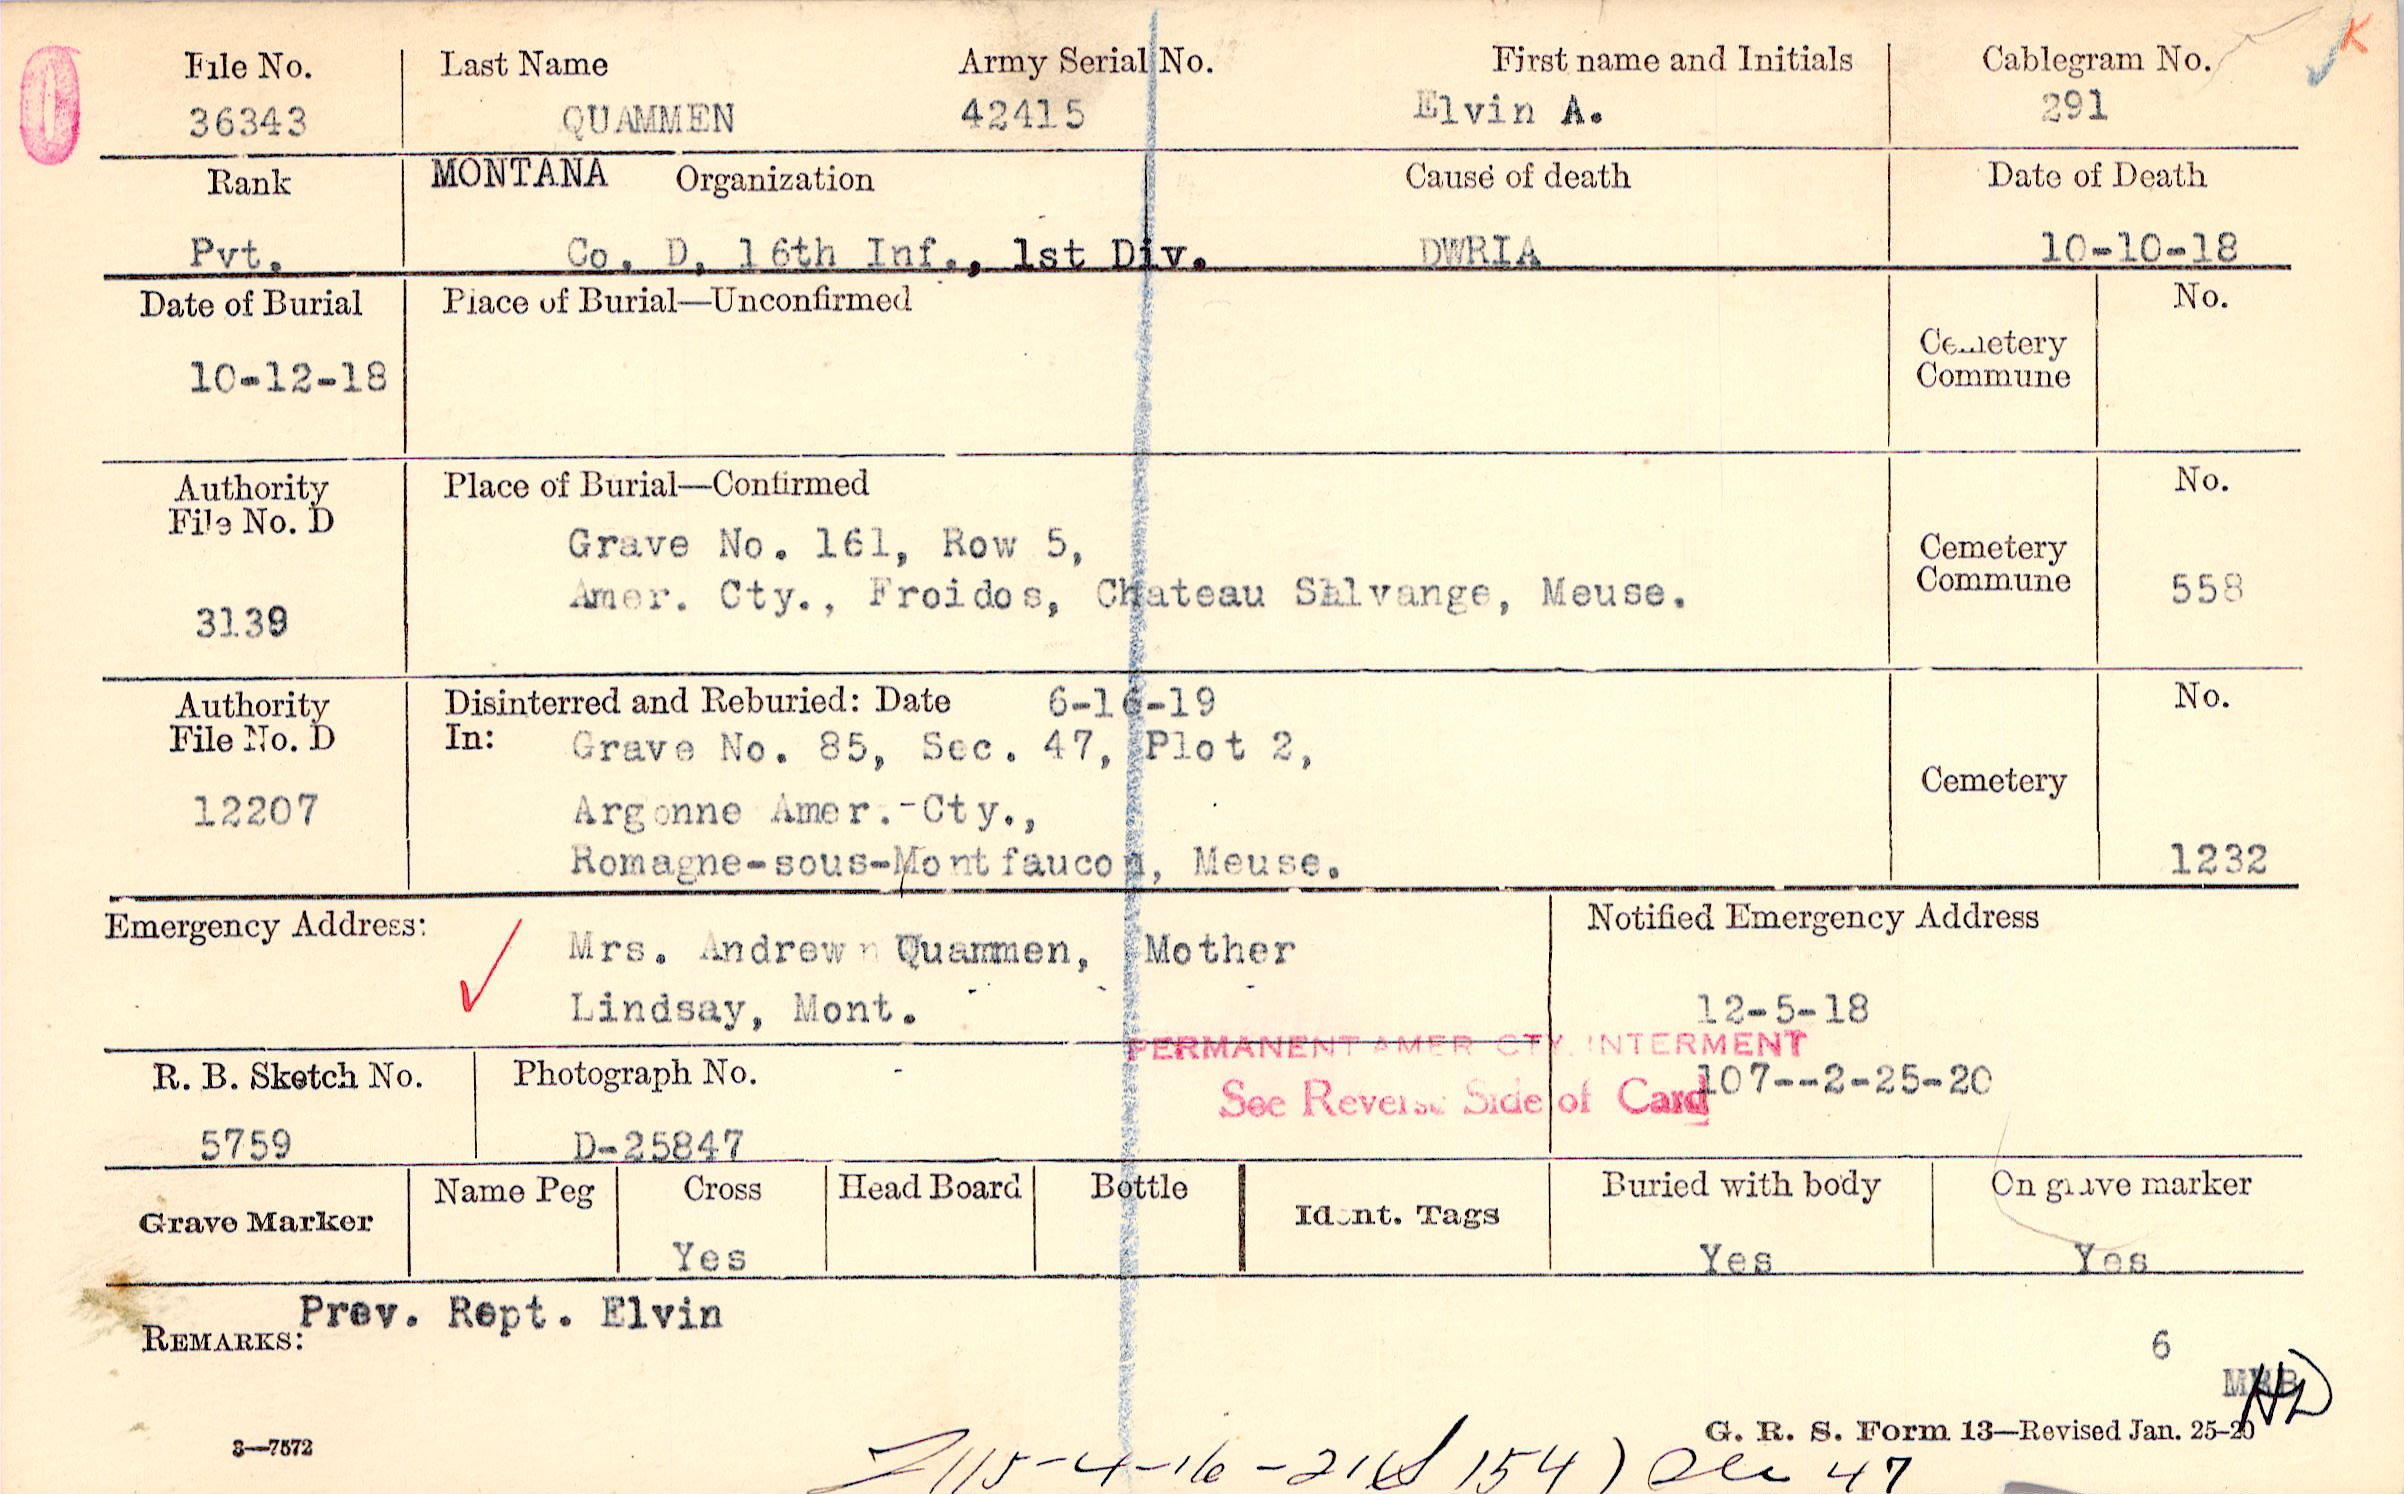 File No. Last Name Army Serial No. First name and Initials Cablegram No. K
36343 QUAMMEN 42415 Elvin A. 291
Rank MONTANA Organization Cause of death Date of Death
Pvt. Co. D, 16th Inf., 1st Div. DWRIA 10-10-18
Date of Burial Place of Burial—Unconfirmed No.
Cemetery
Commune
10-12-18
Authority Place of Burial—Confirmed No.
File No. D
Grave No. 161, Row 5,
Cemetery
Commune
Amer. Cty., Froidos, Chateau Salvange, Meuse. 558
3139
Authority Disinterred and Reburied: Date 6-16-19 No.
File No. D In: Grave No. 85, Sec. 47, Plot 2,
Cemetery
12207 Argonne Amer. Cty.,
Romagne-sous-Montfaucon, Meuse. 1232
Emergency Address: Notified Emergency Address
Mrs. Andrew Quammen, Mother
Lindsay, Mont. 12-5-18
PERMANENT AMER CTY. INTERMENT
R. B. Sketch No. Photograph No. See Reverse Side of Card 107--2-25-20
5759 D-25847
Grave Marker Name Peg Cross Head Board Bottle Ident. Tags Buried with body On grave marker
Yes Yes Yes
Prev. Rept. Elvin
REMARKS:
6
HD
G. R. S. Form 13—Revised Jan. 25-20
3—7572
115-4-16-21 154) 47